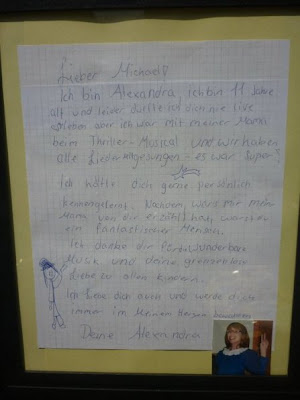 Lieber Michael
Ich bin Alexandra, ich bin 11 Jahre
alt und leider durfte ich dich nie live
erleben aber ich war mit meiner Mama
beim Thriller-Musical und wir haben
alle Lieder mitgesungen - es war super!
Ich hätte dich gerne persönlich
kennengelernt. Nachdem, was mir meine
Mama von dir erzählt hat, warst du
ein fantastischer Mensch.
Ich danke dir für die wunderbare
Musik und deine grenzenlose
Liebe zu allen Kindern.
Ich liebe dich auch und werde dich
immer in meinem Herzen bewahren
Deine Alexandra